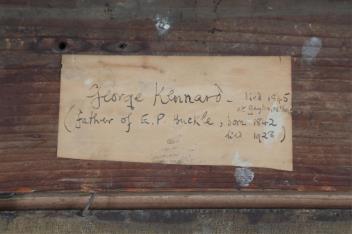 George Kennard - died 1945
(father of G.P. Huckle, born 1842
died 1928)